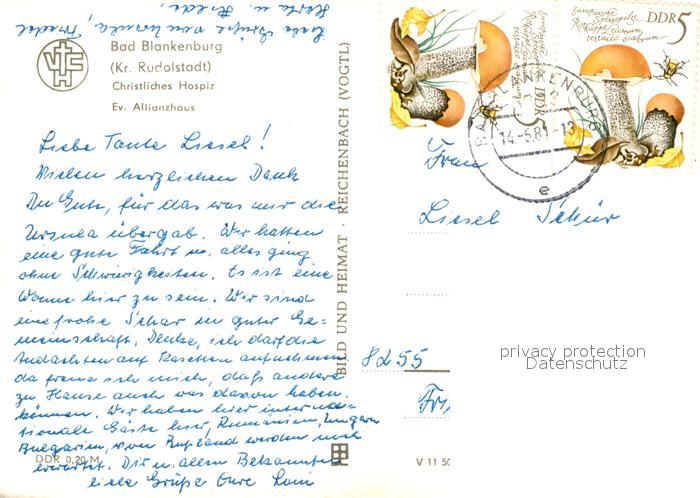 Bad Blankenburg
(Kr. Rudolstadt)
Christliches Hospiz
Ev. Allianzhaus
Liebe Tante Liesel!
Vielen herzlichen Dank
Du Gute, für das was mir die
Ursula übergab. Wir hatten
eine gute Fahrt u. alles ging
ohne Schwierigkeiten. Es ist eine
Wonne hier zu sein. Wir sind
eine frohe Schar in guter Ge-
meinschaft. Denke, ich darf die
Andachten auf Kasetten aufnehmen
da freue ich mich, daß andere
zu Hause auch was davon haben
können. Wir haben hier interna-
tionale Gäste hier, Rumänien, Ungarn
Bulgarien, von Rußland werden noch
erwartet. Dir u. allen Bekannten
liebe Grüße Eure Loni
Liebe Grüße von Ursula,
Herta u.
DDR 0,20 M
BILD UND HEIMAT · REICHENBACH (VOGTL)
V 11 50
Europäische
Speisepilze
Rotkappe
DDR 5
Europäische
Speisepilze
Rotkappe
DDR 5
BAD BLANKENBURG
14.-5.81-13
e
Frau
Liesel Schür
8255
privacy protection
Datenschutz